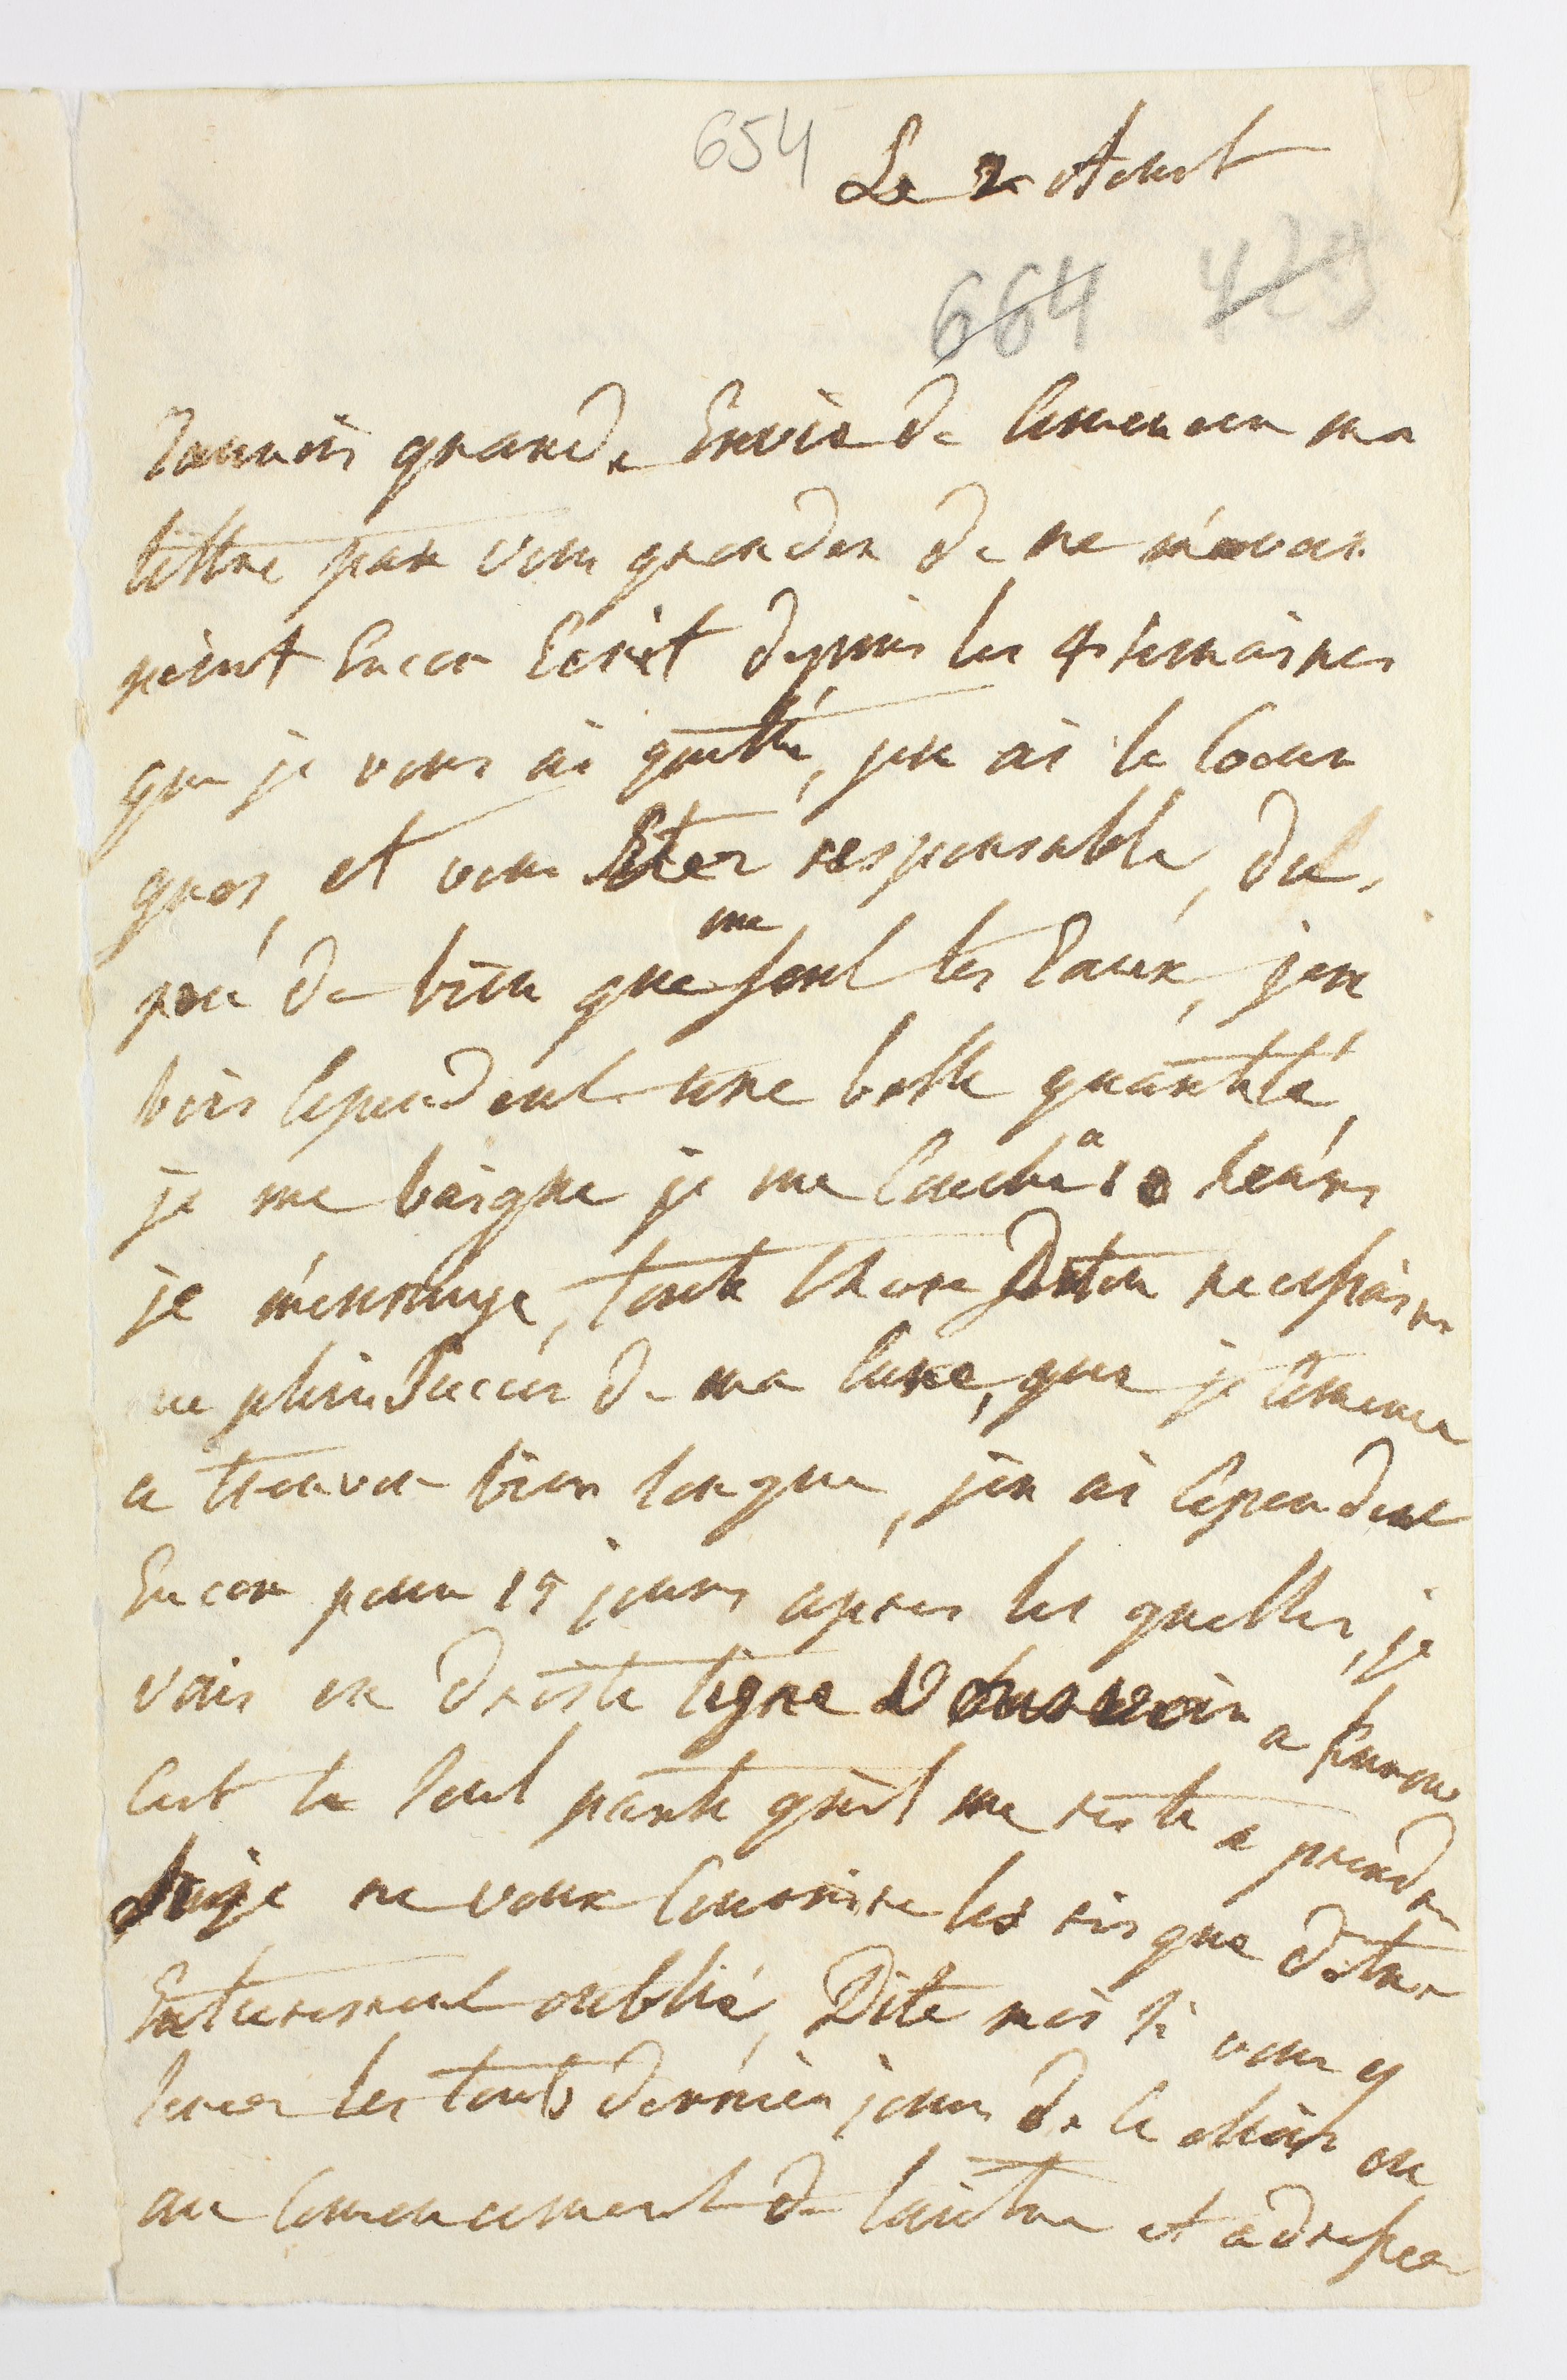 654 Le 2 Aout
664 425
J'aurois grande Envie de Comencer ma
lettre par vous gronder de ne m'avoir
point Encor Ecrit depuis les 4 semaines
que je vous ai quitté, jen ai le Coeur
gros, et vous Etez responsable, du
peu de bien que me font les Eaux, jen
bois Cependent une belle quantité,
je me baigne je me Couche a 10 heurs
je m'ennuye, toute Chose Dit on necessaire
au plein Succes de ma Cure, que je Comence
a trouver bien longue, jen ai Cependent
Encor pour 15 jours apres les quelles, je
vais en droite ligne Vous revoir a
Cest le seul partie qu'il me reste a prendre
si je ne veux Courire les risque d'etre
Entierement oublié, Dite moi si vous y
serez les touts dernier jours de ce Mois ou
au Comencement de l'autre et adressez